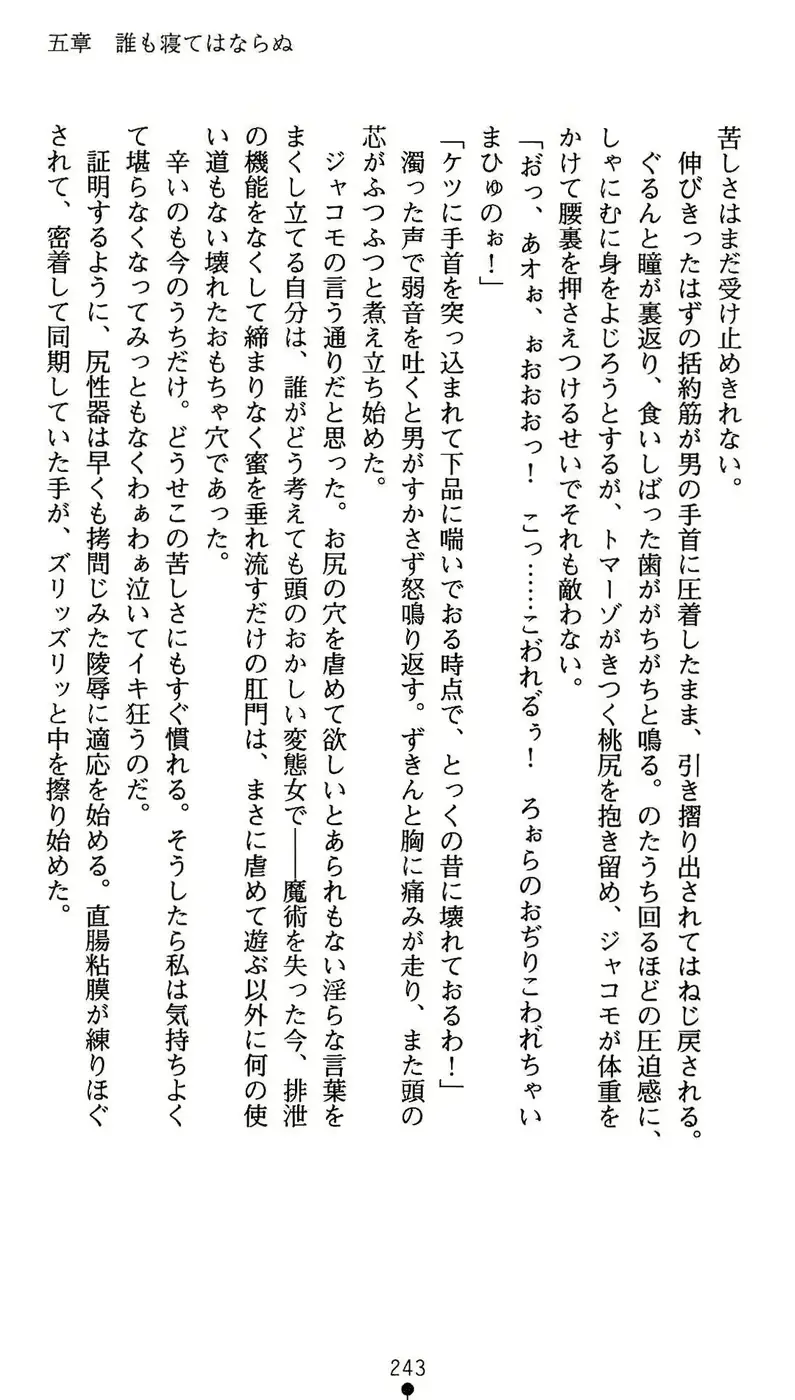 五章　誰も寝てはならぬ
苦しさはまだ受け止めきれない。
　伸びきったはずの括約筋が男の手首に圧着したまま、引き摺り出されてはねじ戻される。
　ぐるんと瞳が裏返り、食いしばった歯ががちがちと鳴る。のたうち回るほどの圧迫感に、
しゃにむに身をよじろうとするが、トマーゾがきつく桃尻を抱き留め、ジャコモが体重を
かけて腰裏を押さえつけるせいでそれも敵わない。
「お゛っ、あオぉ、ぉおおおっ！　こっ……こお゛れるぅ！　ろぉらのおぢりこわれちゃい
まひゅのぉ！」
「ケツに手首を突っ込まれて下品に喘いでおる時点で、とっくの昔に壊れておるわ！」
　濁った声で弱音を吐くと男がすかさず怒鳴り返す。ずきんと胸に痛みが走り、また頭の
芯がふつふつと煮え立ち始めた。
　ジャコモの言う通りだと思った。お尻の穴を虐めて欲しいとあられもない淫らな言葉を
まくし立てる自分は、誰がどう考えても頭のおかしい変態女で――魔術を失った今、排泄
の機能をなくして締まりなく蜜を垂れ流すだけの肛門は、まさに虐めて遊ぶ以外に何の使
い道もない壊れたおもちゃ穴であった。
　辛いのも今のうちだけ。どうせこの苦しさにもすぐ慣れる。そうしたら私は気持ちよく
て堪らなくなってみっともなくわぁわぁ泣いてイキ狂うのだ。
　証明するように、尻性器は早くも拷問じみた陵辱に適応を始める。直腸粘膜が練りほぐ
されて、密着して同期していた手が、ズリッズリッと中を擦り始めた。
243